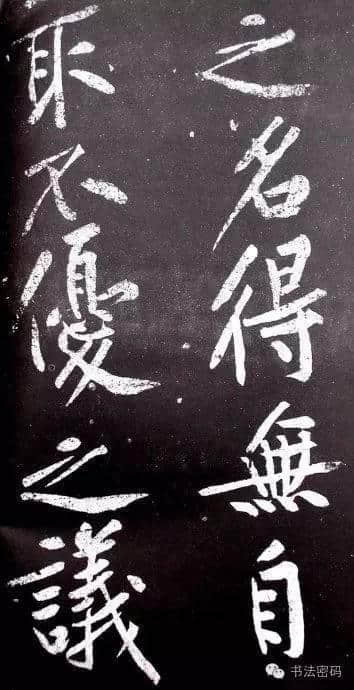 之名得無自
取不優之議
书法密码